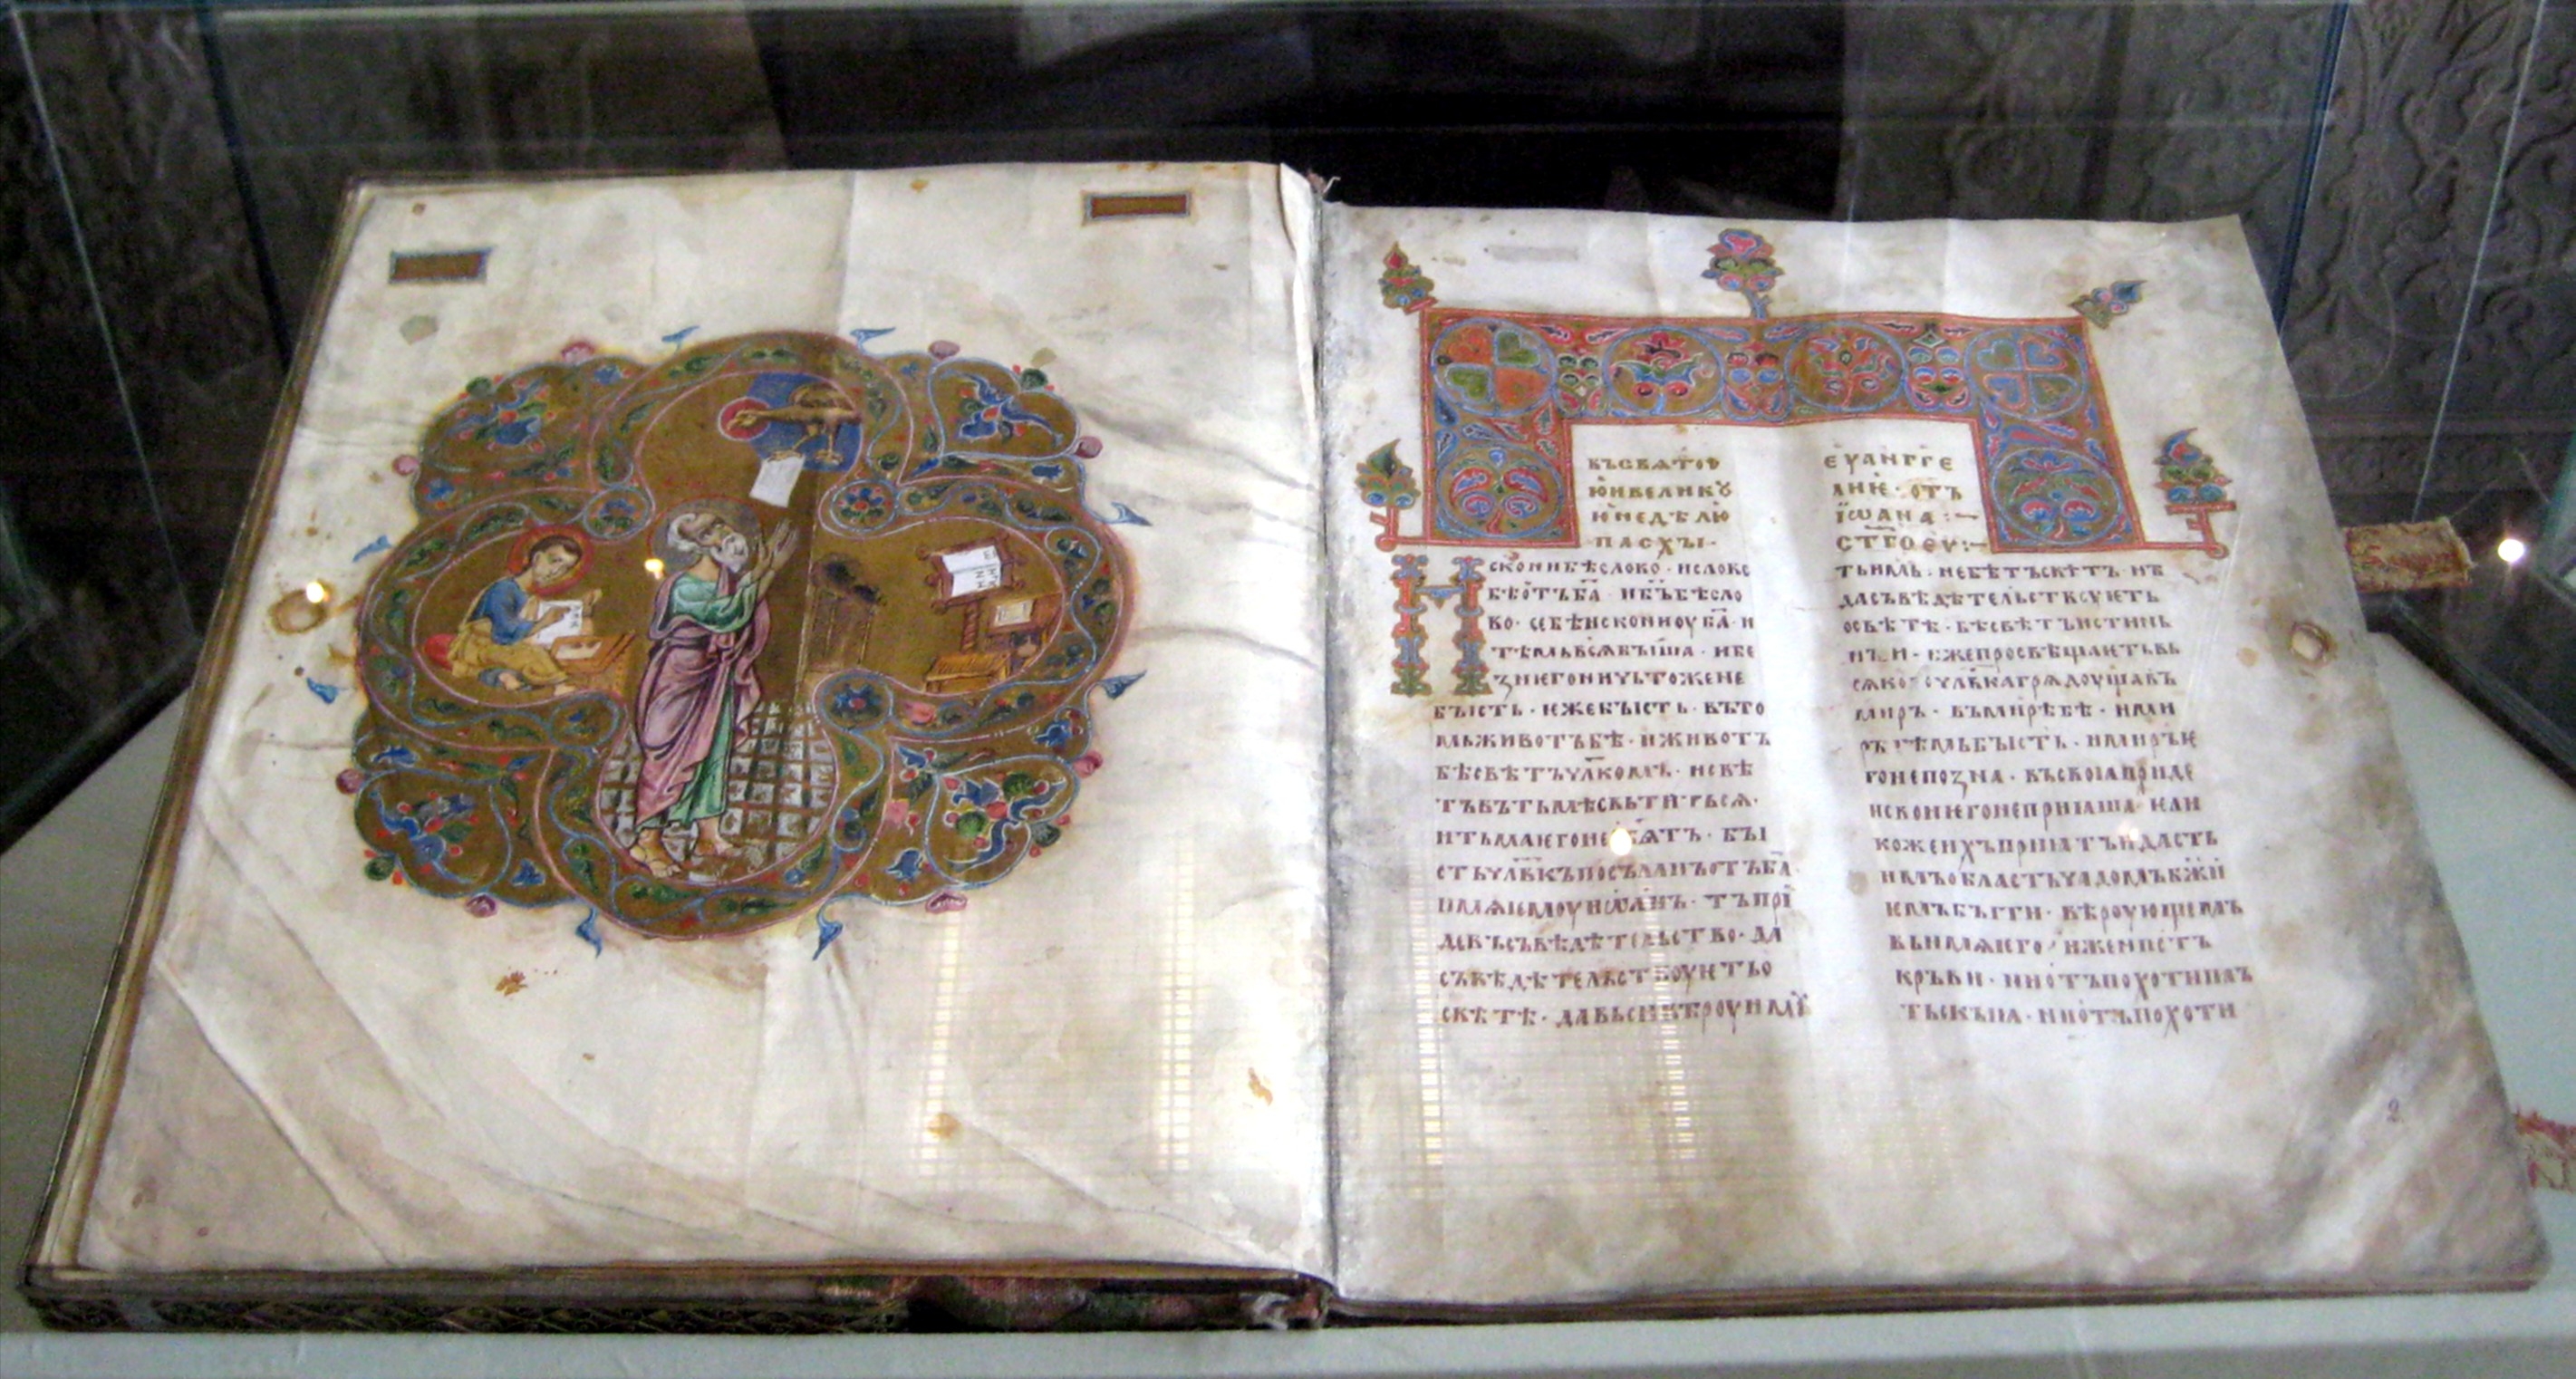 въсвѧтоу
ю҆ивеликоу
ю҆недѣлю
пасхꙑ·
Искониbѣслово · ислово
бѣо҆тъб҃а · иб҃ъбѣсло
во · себѣискониоуб҃а · и
тѣмьвсꙗбꙑша · ибе
ꙁнѥгоничьтоженебꙑ
бꙑсть · ѥжебꙑсть · въто
мьживотъбѣ · иживотъ
бѣсвѣтъчл҃комъ · исвѣ
тъвътьмѣсвьтитьсѧ ·
итьмаѥгонеѡбѧтъ · бꙑ
стьчлв҃къпосъланъотъб҃а ·
имѧѥмоуиѡанъ · тъпрі
девъсъвѣдѣтельство · да
съвѣдѣтельствоуѥтьо
свѣтѣ · давьсивѣроуимꙋ
еуангге
лиѥ · отъ
їѡана :~
ст҃гоеу :~
тьимь · небѣтъсвѣтъ · нъ
дасъвѣдѣтельствоуѥть
освѣтѣ · бѣсвѣтъистинь
нꙑи · ижепросвѣщаѥтьвь
сѧкогочл҃вкагрѧдоущавъ
миръ · въмирѣбѣ · ими
рътѣмьбꙑсть · имиръѥ
гонепоꙁна · въсвоꙗприде
исвоиѥгонеприꙗша · ѥли
кожеихъприꙗтъидасть
имъобластьчадомъбж҃и
ѥмъбꙑти · вѣроующемъ
въимѧѥго · иженеотъ
кръви · ниотъпохотипль
тьскꙑꙗ · ниотъпохоти
2